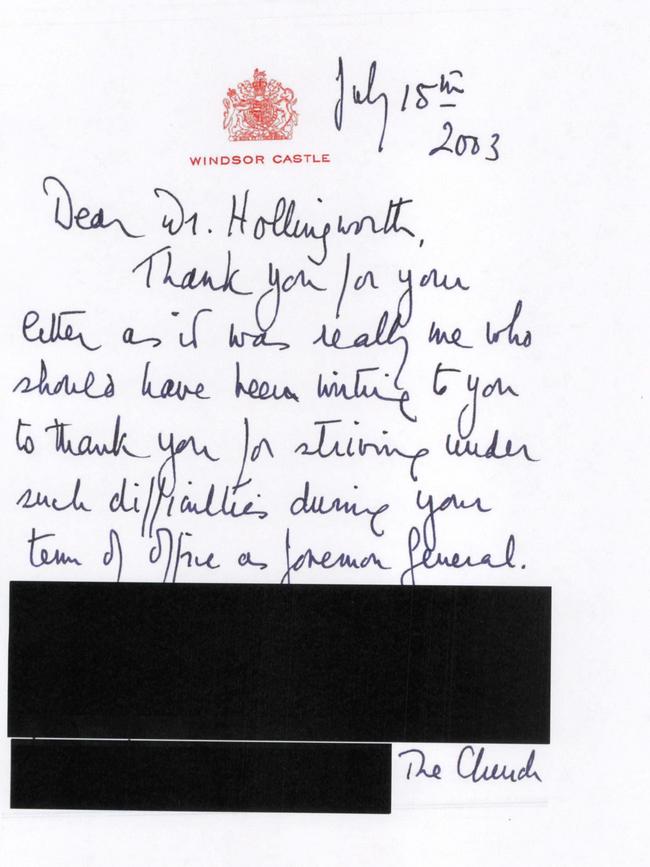 July 15th
2003
WINDSOR CASTLE
Dear Dr. Hollingworth,
Thank you for your
letter as it was really me who
should have been writing to you
to thank you for striving under
such difficulties during your
term of office as Governor General.
The Church